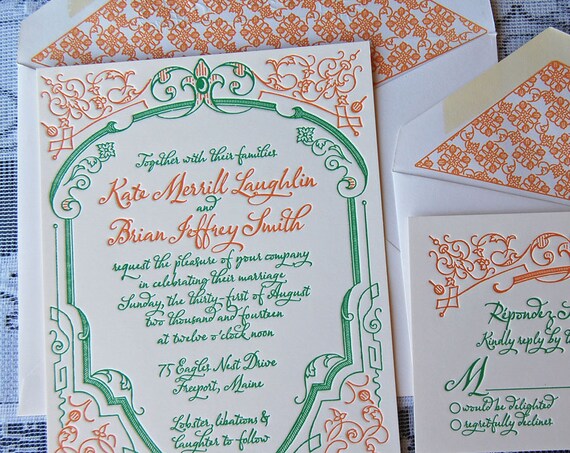 Together with their families
Kate Merrill Laughlin
and
Brian Jeffrey Smith
request the pleasure of your company
in celebrating their marriage
Sunday, the thirty-first of August
two thousand and fourteen
at twelve o'clock noon
75 Eagles Nest Drive
Freeport, Maine
Lobster, libations &
laughter to follow
Répondez
Kindly reply by
M
would be delighted
regretfully declines